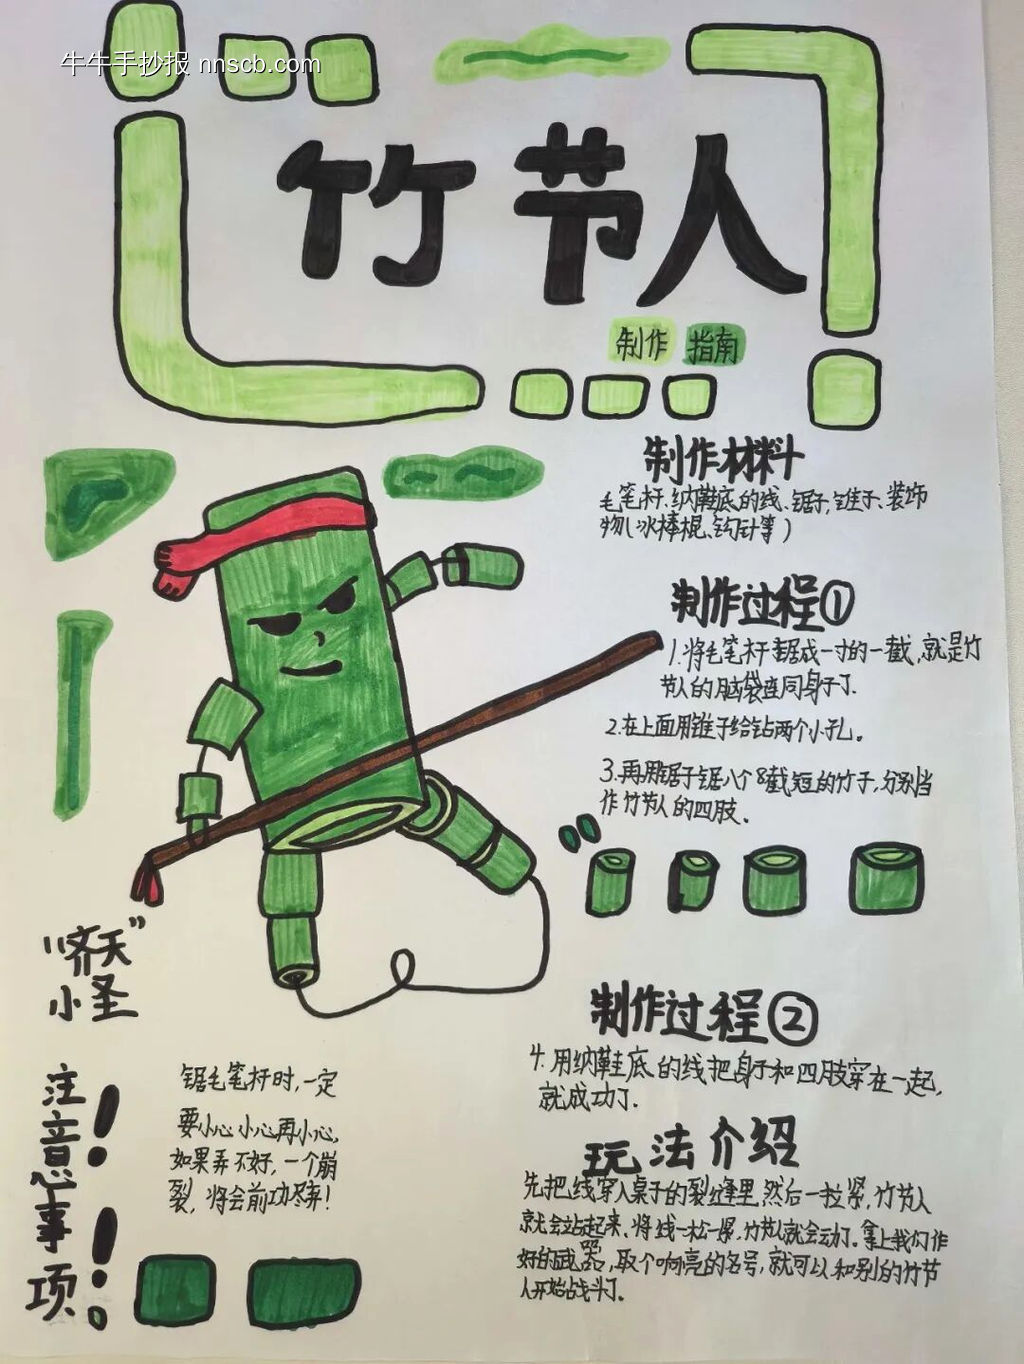 牛牛手抄报 nnscb.com
竹节人
制作 指南
制作材料
毛笔杆、纳鞋底的线、锯子,锥子、装饰
物(冰棒棍、钩针等)
制作过程①
1.将毛笔杆锯成一寸的一截,就是竹
节人的脑袋连同身子了.
2.在上面用锥子给钻两个小孔。
3.再用锯子锯八个8截短的竹子,分别当
作竹节人的四肢.
"齐天"
小圣
制作过程②
4.用纳鞋底的线把身子和四肢穿在一起,
就成功了.
注意事项
!!
锯毛笔杆时,一定
要小心小心再小心,
如果弄不好,一个崩
裂,将会前功尽弃!
玩法介绍
先把线穿入桌子的裂缝里,然后一拉紧,竹节人
就会站起来、将线一松一紧,竹节人就会动了。拿上我们作
好的武器,取个响亮的名号,就可以和别的竹节
人开始战斗了.